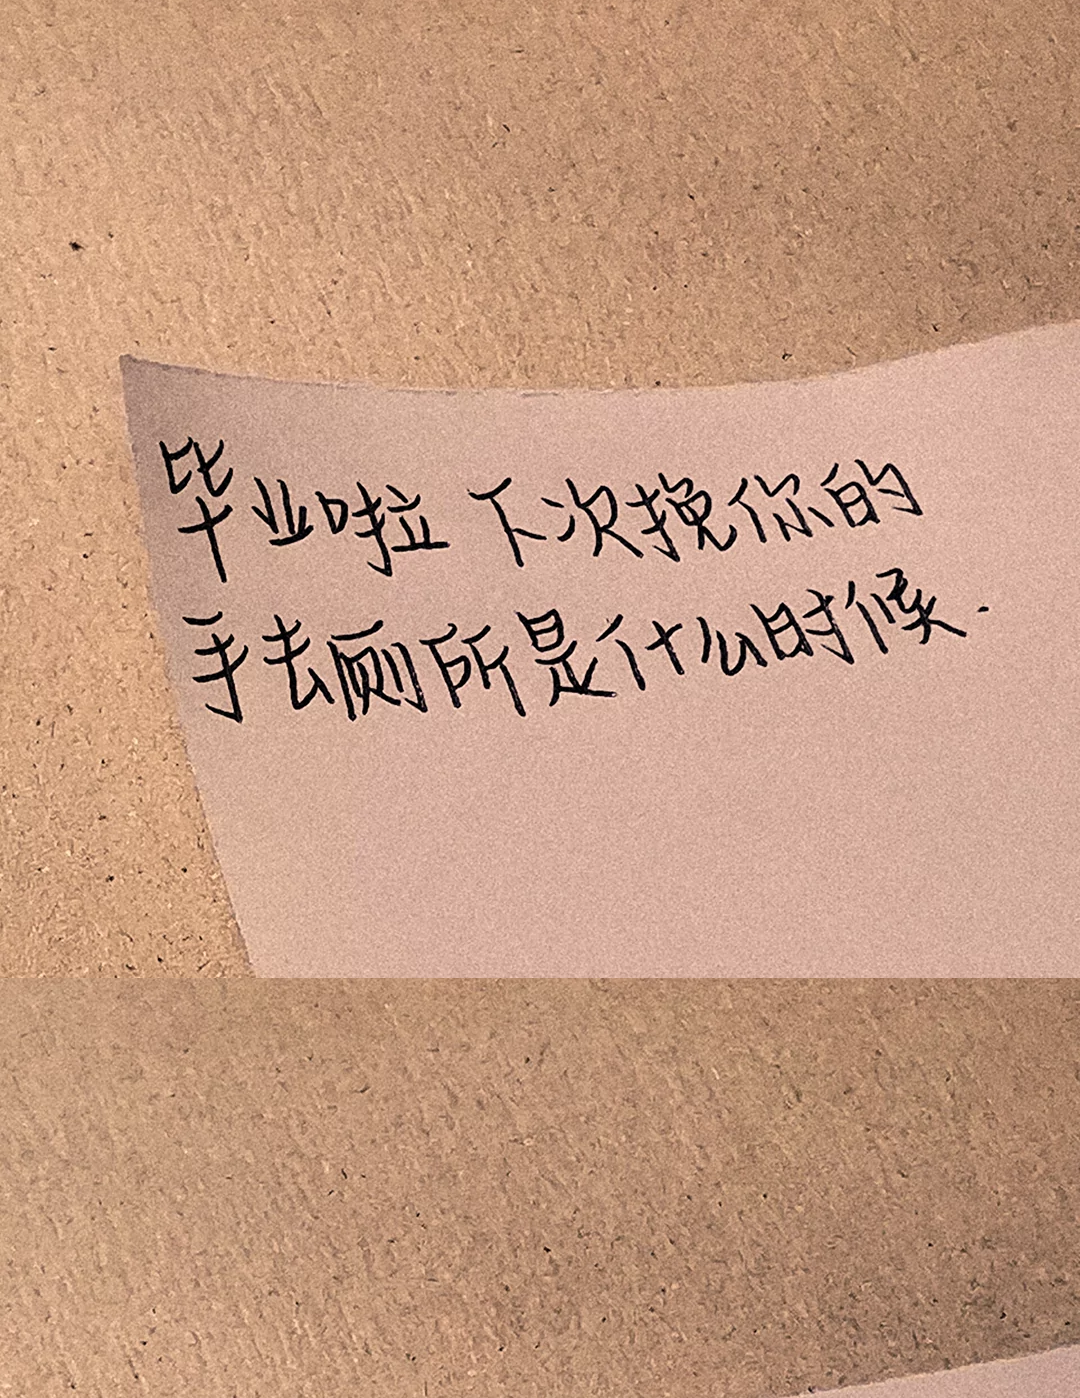 毕业啦 下次挽你的
手去厕所是什么时候.